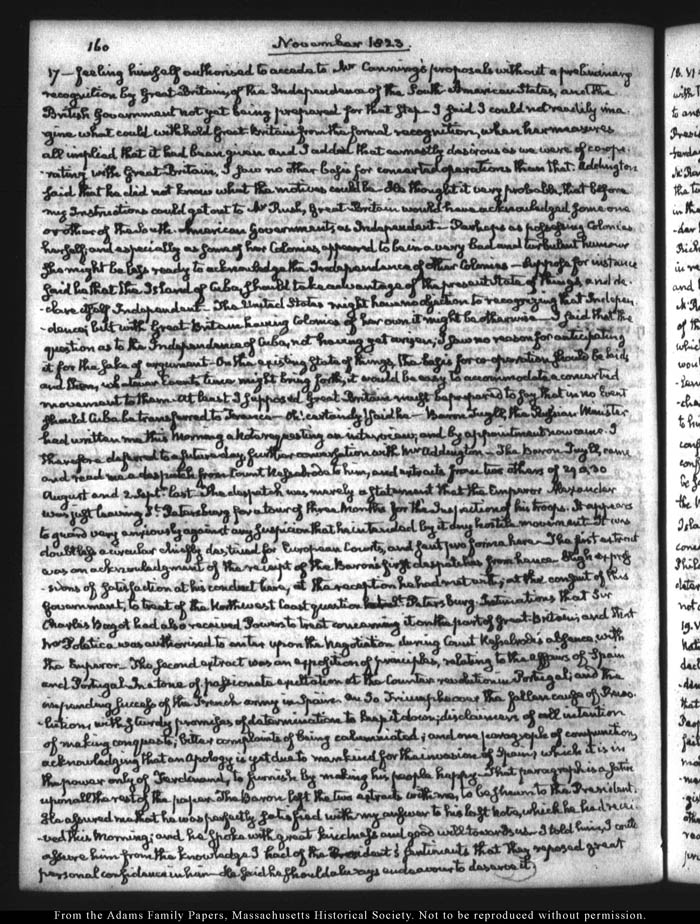 160
November 1823.
17 — feeling himself authorised to accede to Mr Canning's proposals without a preliminary
recognition by Great-Britain, of the Independence of the South-American States, and the
British Government not yet being prepared for that step. I said I could not readily ima-
gine what could withhold Great-Britain from the formal recognition, when her measures
all implied that it had been given and I added that earnestly desirous as we were of coope-
-rating with Great-Britain, I saw no other basis for concerted operations than that. Addington
said that he did not know what the motives could be. He thought it very probable that before
my Instructions could get out to Mr Rush, Great-Britain would have acknowledged some one
or other of the South-American Governments, as Independent — Perhaps as possessing Colonies
herself, and especially as some of her Colonies, appeared to be in a very bad and turbulent humour
She might be less ready to acknowledge the Independence of other Colonies — Suppose for instance
said he that the Island of Cuba, should take advantage of the present State of things, and de-
-clare itself Independent — The United States might have no objection to recognizing that Indepen-
-dence; but with Great-Britain having Colonies of her own it might be otherwise — I said that the
question as to the Independence of Cuba, not having yet arisen, I saw no reason for anticipating
it for the sake of argument — On the existing State of things, the basis for co-operation should be laid;
and then, whatever Events time might bring forth, it would be easy to accommodate a concerted
movement to them — At least I supposed Great Britain must be prepared to say that in no Event
should Cuba be transferred to France — Oh! certainly said he — Baron Tuyll, the Russian Minister
had written me this Morning a Note requesting an interview; and by appointment now came. I
therefore deferred to a future day, further conversation with Mr Addington — The Baron Tuyll, came
and read me a despatch from Count Nesselrode to him, and extracts from two others of 29 a 30
August and 2. Septr. last. The despatch was merely a statement that the Emperor Alexander
was just leaving St. Petersburg for a tour of three Months for the Inspection of his troops. It appears
to guard very anxiously against any suspicion that he intended by it any hostile movement. It was
doubtless a circular chiefly destined for European Courts, and sent pro forma here — The first extract
was an acknowledgment of the receipt of the Baron's first despatches from hence. High expres-
-sions of satisfaction at his conduct here, at the reception he had met with; at the consent of this
Government, to treat of the Northwest Coast question at St. Petersburg. Intimations that Sir
Charles Bagot had also received Powers to treat concerning it on the part of Great-Britain; and that
Mr Poletica was authorised to enter upon the Negotiation during Count Nesselrode's absence, with
the Emperor — The second extract was an exposition of principles, relating to the affairs of Spain
and Portugal. In a tone of passionate exultation at the Counter revolution in Portugal; and the
impending success of the French army in Spain. An Io Triumphe over the fallen cause of Revo-
-lution, with sturdy promises of determination to keep it down; disclaimers of all intention
of making conquests; bitter complaints of being calumniated; and one paragraph of compunction,
acknowledging that an Apology is yet due to mankind for the invasion of Spain, which it is in
the power only of Ferdinand, to furnish, by making his people happy. That paragraph is a satire
upon all the rest of the paper. The Baron left the two extracts with me, to be shewn to the President.
He assured me that he was perfectly satisfied with my answer to his last Note, which he had recei-
-ved this Morning; and he spoke with great kindness and good will towards us. I told him, I could
assure him from the knowledge I had of the President's sentiments that they reposed great
personal confidence in him — He said he should always endeavour to deserve it.
From the Adams Family Papers, Massachusetts Historical Society. Not to be reproduced without permission.